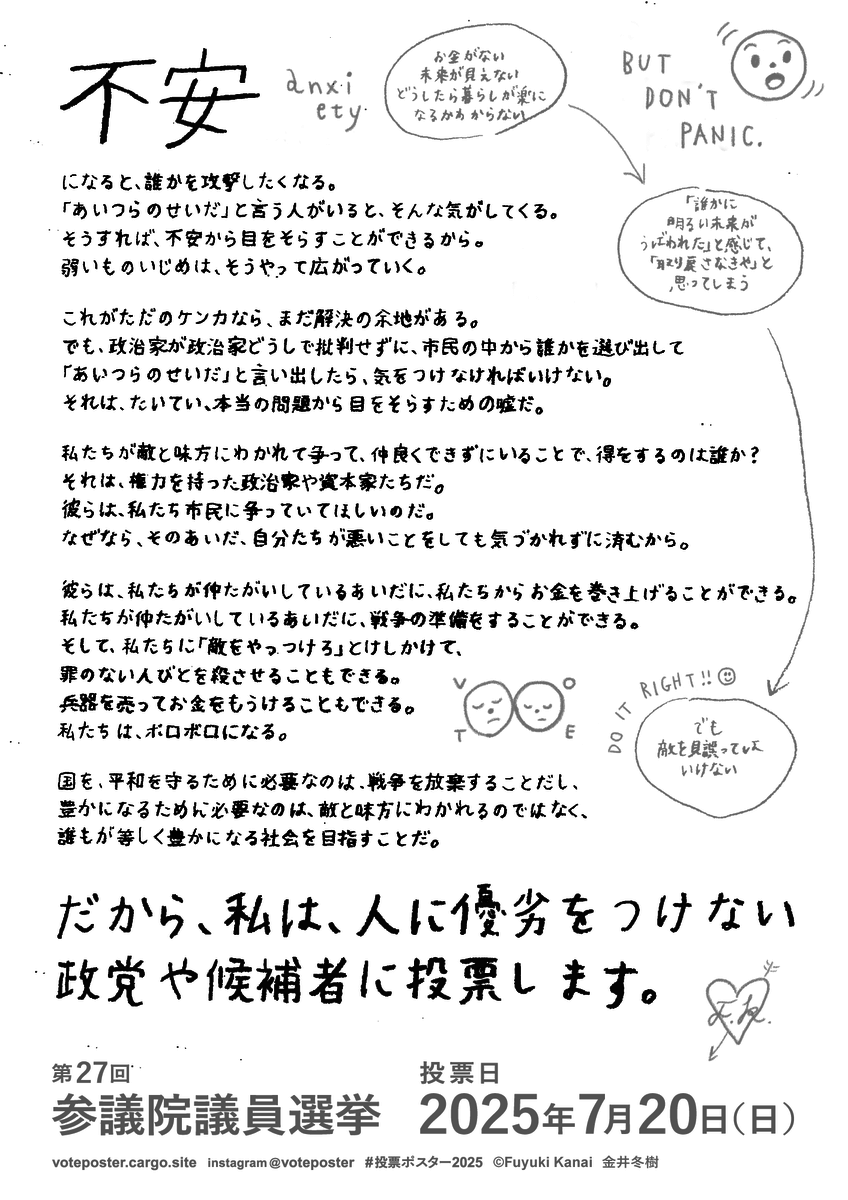 不安
anxi
ety
お金がない
未来が見えない
どうしたら暮らしが楽に
なるかわからない
BUT
DON'T
PANIC.
になると、誰かを攻撃したくなる。
「あいつらのせいだ」と言う人がいると、そんな気がしてくる。
そうすれば、不安から目をそらすことができるから。
弱いものいじめは、そうやって広がっていく。
「誰かに
明るい未来が
うばわれた」と感じて、
「取り戻さなきゃ」と
思ってしまう
これがただのケンカなら、まだ解決の余地がある。
でも、政治家が政治家どうしで批判せずに、市民の中から誰かを選び出して
「あいつらのせいだ」と言い出したら、気をつけなければいけない。
それは、たいてい、本当の問題から目をそらすための嘘だ。
私たちが敵と味方にわかれて争って、仲良くできずにいることで、得をするのは誰か?
それは、権力を持った政治家や資本家たちだ。
彼らは、私たち市民に争っていてほしいのだ。
なぜなら、そのあいだ、自分たちが悪いことをしても気づかれずに済むから。
彼らは、私たちが仲たがいしているあいだに、私たちからお金を巻き上げることができる。
私たちが仲たがいしているあいだに、戦争の準備をすることができる。
そして、私たちに「敵をやっつけろ」とけしかけて、
罪のない人びとを殺させることもできる。
兵器を売ってお金をもうけることもできる。
私たちは、ボロボロになる。
V O
T E
DO IT RIGHT!!
でも
敵を見誤っては
いけない
国を、平和を守るために必要なのは、戦争を放棄することだし、
豊かになるために必要なのは、敵と味方にわかれるのではなく、
誰もが等しく豊かになる社会を目指すことだ。
だから、私は、人に優劣をつけない
政党や候補者に投票します。
F.K.
第27回
参議院議員選挙
投票日
2025年7月20日(日)
voteposter.cargo.site instagram@voteposter #投票ポスター2025 ©Fuyuki Kanai 金井冬樹